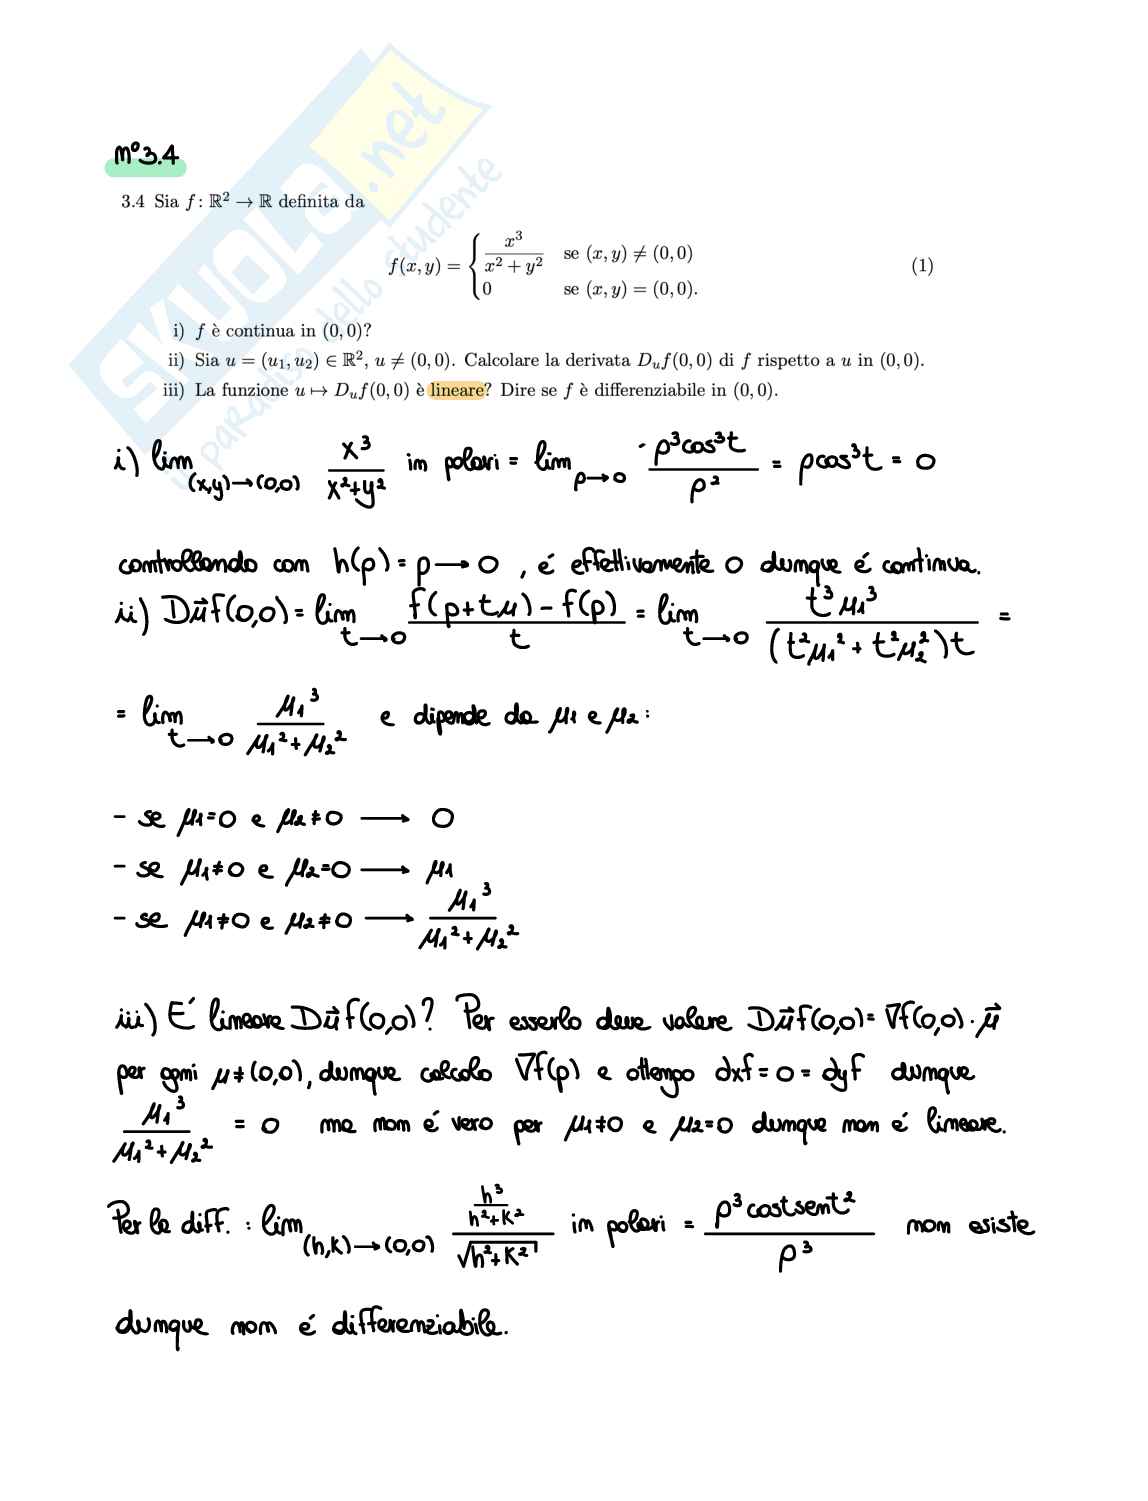 SKUOLA.net
paradiso dello studente
n°3.4
3.4 Sia f: ℝ² → ℝ definita da
f(x, y) = { x³/(x² + y²) se (x, y) ≠ (0, 0)
0 se (x, y) = (0, 0). (1)
i) f è continua in (0, 0)?
ii) Sia u = (u₁, u₂) ∈ ℝ², u ≠ (0, 0). Calcolare la derivata D_u f(0, 0) di f rispetto a u in (0, 0).
iii) La funzione u ↦ D_u f(0, 0) è lineare? Dire se f è differenziabile in (0, 0).
i) lim (x,y)→(0,0) x³/(x²+y²) in polari = lim ρ→0 ρ³cos³t/ρ² = ρcos³t = 0
controllando con h(ρ) = ρ → 0 , é effettivamente 0 dunque é continua.
ii) Dūf(0,0) = lim t→0 (f(p+tμ) - f(p))/t = lim t→0 t³μ₁³/((t²μ₁² + t²μ₂²)t) =
= lim t→0 μ₁³/(μ₁²+μ₂²) e dipende da μ₁ e μ₂:
- se μ₁=0 e μ₂≠0 → 0
- se μ₁≠0 e μ₂=0 → μ₁
- se μ₁≠0 e μ₂≠0 → μ₁³/(μ₁²+μ₂²)
iii) É lineare Du⃗f(0,0)? Per esserlo deve valere Du⃗f(0,0) = ∇f(0,0)·μ⃗
per ogni μ≠(0,0), dunque calcolo ∇f(p) e ottengo dxf = 0 = dyf dunque
μ₁³/(μ₁²+μ₂²) = 0 ma non é vero per μ₁≠0 e μ₂=0 dunque non é lineare.
Per la diff. : lim (h,k)→(0,0) (h³/(h²+k²))/√(h²+k²) in polari = ρ³costsent²/ρ³ non esiste
dunque non é differenziabile.